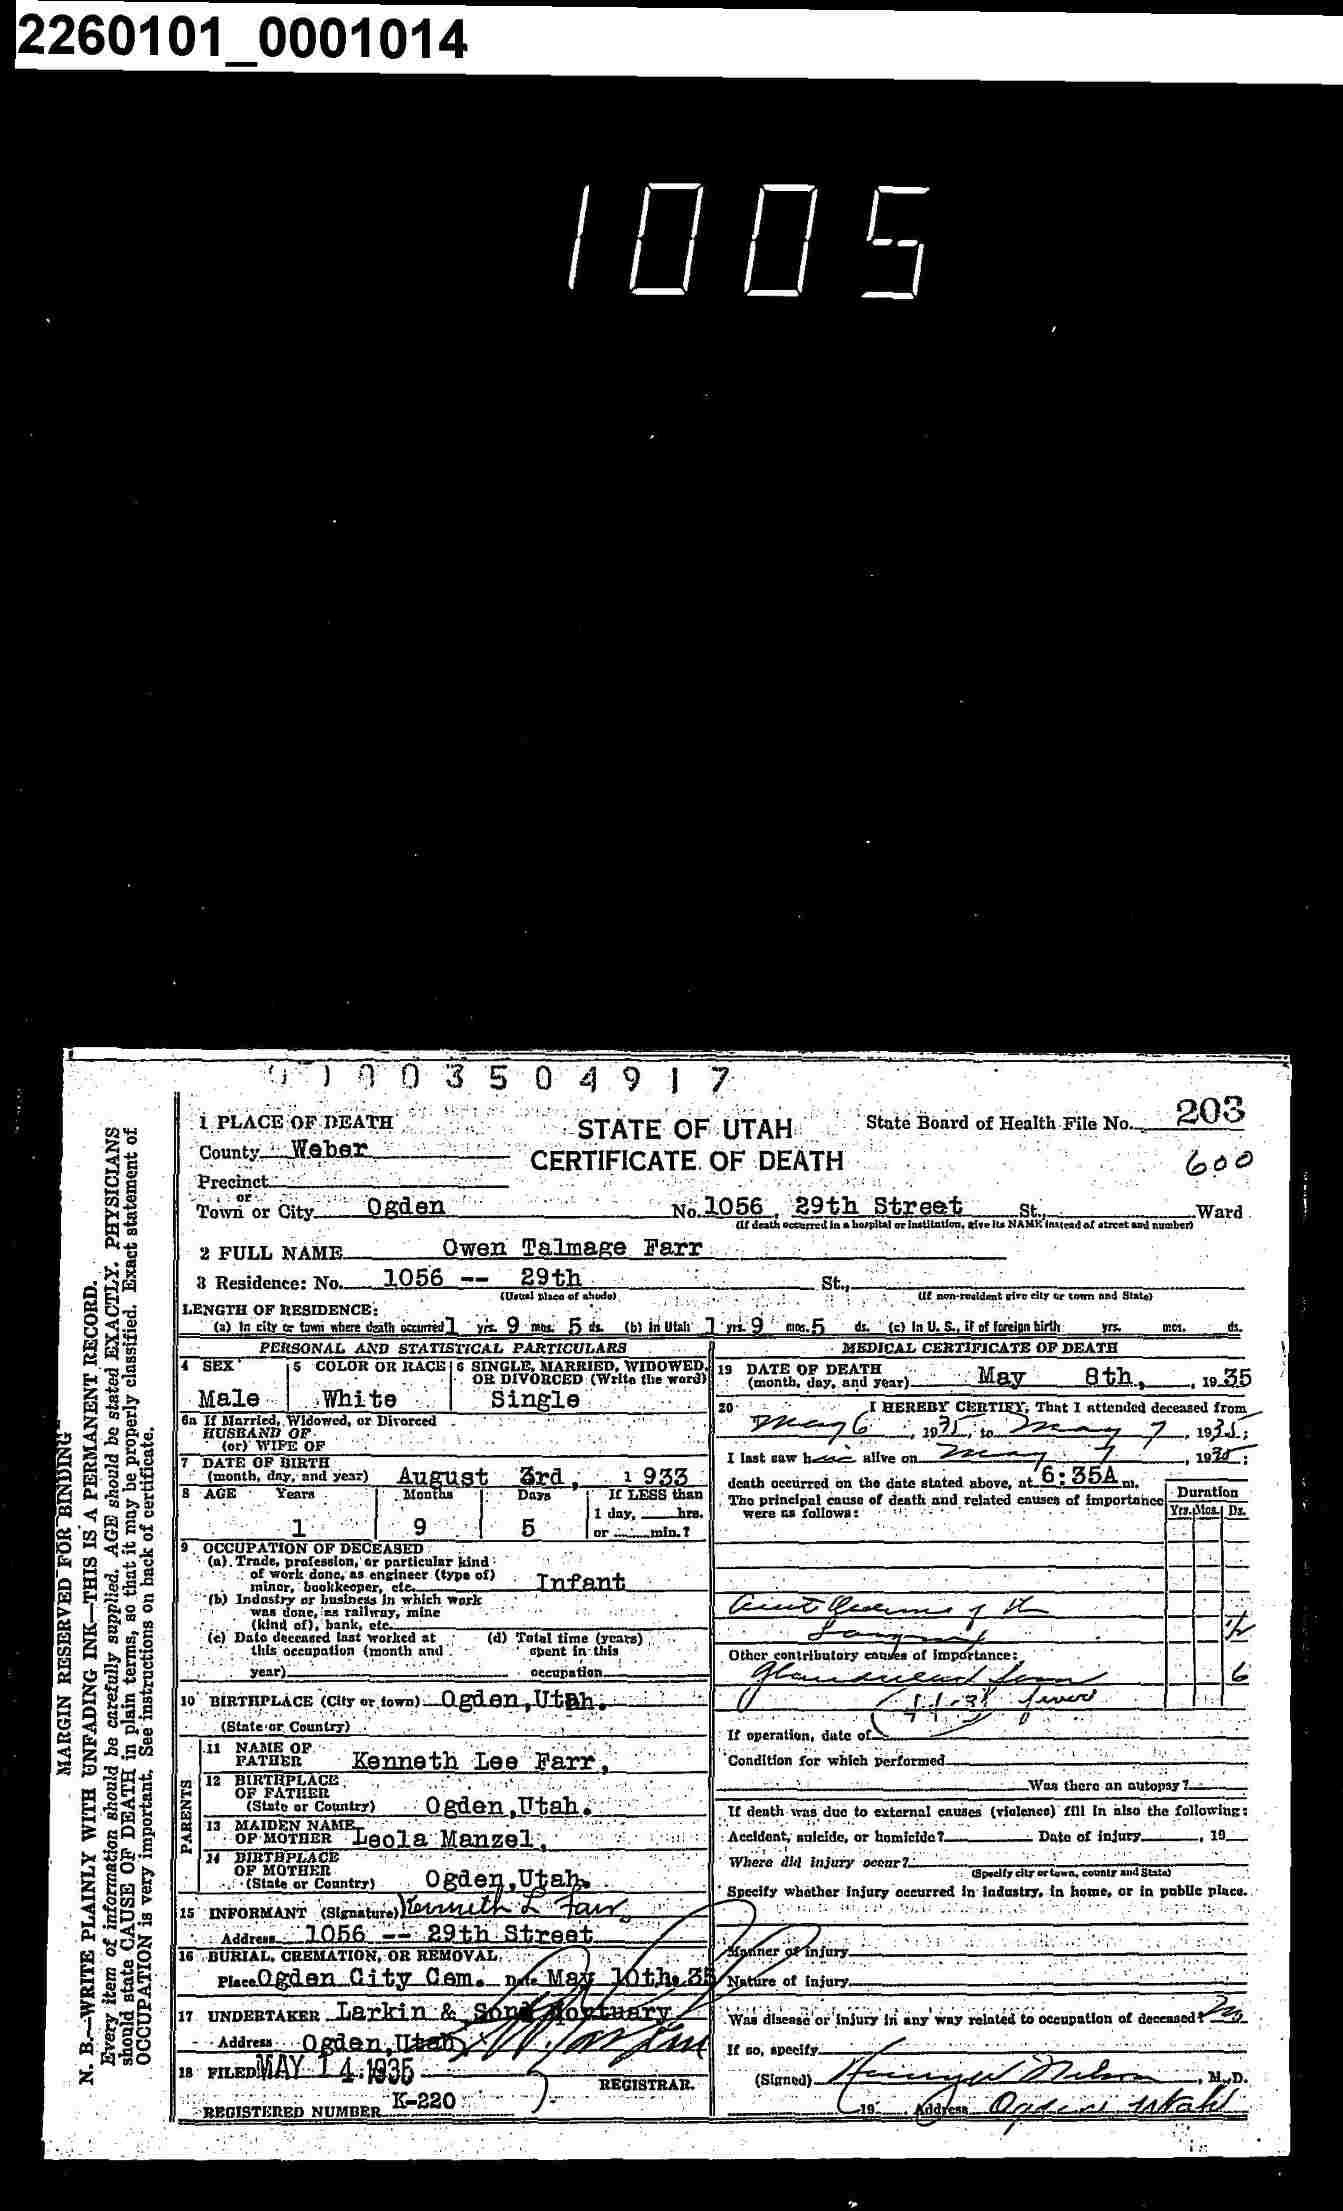 2260101_0001014
1005
MARGIN RESERVED FOR BINDING
N. B.—WRITE PLAINLY WITH UNFADING INK—THIS IS A PERMANENT RECORD.
Every item of information should be carefully supplied. AGE should be stated EXACTLY. PHYSICIANS
should state CAUSE OF DEATH in plain terms, so that it may be properly classified. Exact statement of
OCCUPATION is very important. See instructions on back of certificate.
003504917
1 PLACE OF DEATH
STATE OF UTAH
State Board of Health File No. 203
County Weber
CERTIFICATE OF DEATH
600
Precinct
or
Town or City Ogden No. 1056, 29th Street St., Ward
(If death occurred in a hospital or institution, give its NAME instead of street and number)
2 FULL NAME Owen Talmage Farr
3 Residence: No. 1056 -- 29th St.,
(Usual place of abode) (If non-resident give city or town and State)
LENGTH OF RESIDENCE:
(a) In city or town where death occurred 1 yrs. 9 mos. 5 ds. (b) in Utah 1 yrs. 9 mos. 5 ds. (c) In U. S., if of foreign birth yrs. mos. ds.
PERSONAL AND STATISTICAL PARTICULARS
4 SEX 5 COLOR OR RACE 6 SINGLE, MARRIED, WIDOWED, OR DIVORCED (Write the word)
Male White Single
6a If Married, Widowed, or Divorced
HUSBAND OF
(or) WIFE OF
7 DATE OF BIRTH
(month, day, and year) August 3rd, 1933
8 AGE Years Months Days If LESS than
1 day, hrs.
1 9 5 or min.?
9 OCCUPATION OF DECEASED
(a) Trade, profession, or particular kind
of work done, as engineer (type of)
miner, bookkeeper, etc. Infant
(b) Industry or business in which work
was done, as railway, mine
(kind of), bank, etc.
(c) Date deceased last worked at (d) Total time (years)
this occupation (month and spent in this
year) occupation
10 BIRTHPLACE (City or town) Ogden, Utah.
(State or Country)
PARENTS
11 NAME OF
FATHER Kenneth Lee Farr,
12 BIRTHPLACE
OF FATHER
(State or Country) Ogden, Utah.
13 MAIDEN NAME
OF MOTHER Leola Manzel,
14 BIRTHPLACE
OF MOTHER
(State or Country) Ogden, Utah.
15 INFORMANT (Signature) Kenneth L Farr
Address 1056 -- 29th Street
16 BURIAL, CREMATION, OR REMOVAL
Place Ogden City Cem. Date May 10th, 35
17 UNDERTAKER Larkin & Sons Mortuary
Address Ogden, Utah
18 FILED MAY 14 1935
REGISTRAR.
REGISTERED NUMBER K-220
MEDICAL CERTIFICATE OF DEATH
19 DATE OF DEATH
(month, day, and year) May 8th, , 1935
20 I HEREBY CERTIFY, That I attended deceased from
May 6, 1935, to May 7, 1935;
I last saw him alive on May 7, 1935;
death occurred on the date stated above, at 6:35A m.
The principal cause of death and related causes of importance
were as follows:
Duration
Yrs. Mos. Ds.
Other contributory causes of importance:
6
fever
If operation, date of
Condition for which performed
Was there an autopsy?
If death was due to external causes (violence) fill in also the following:
Accident, suicide, or homicide? Date of injury , 19
Where did injury occur?
(Specify city or town, county and State)
Specify whether injury occurred in industry, in home, or in public place.
Manner of injury
Nature of injury
Was disease or injury in any way related to occupation of deceased? No
If so, specify
(Signed) Nelson, M.D.
19 Address Ogden Utah